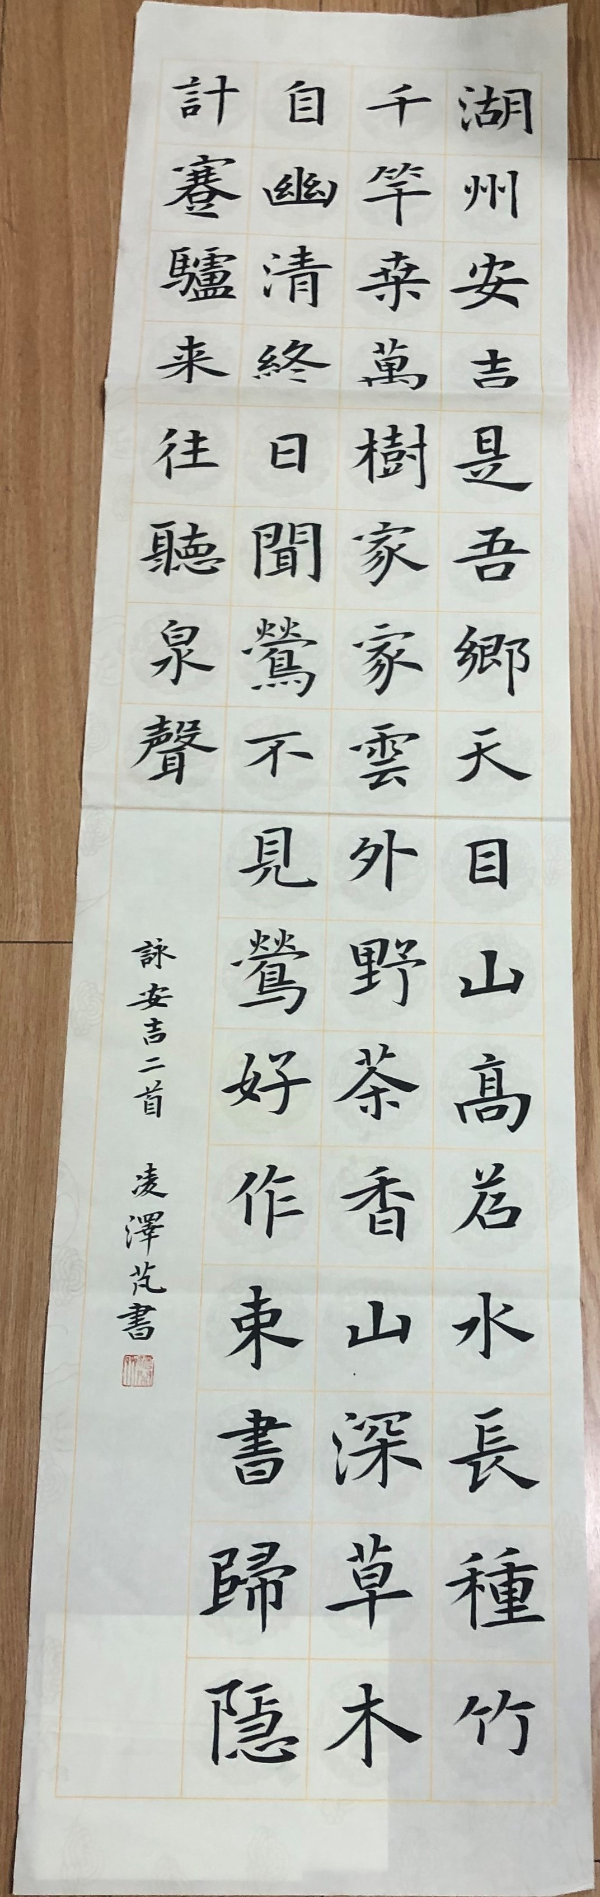 湖州安吉是吾鄉天目山高苕水長種竹
千竿桒萬樹家家雲外野茶香山深草木
自幽清終日聞鶯不見鶯好作束書歸隱
計蹇驢来往聽泉聲
詠安吉二首 凌澤芃書